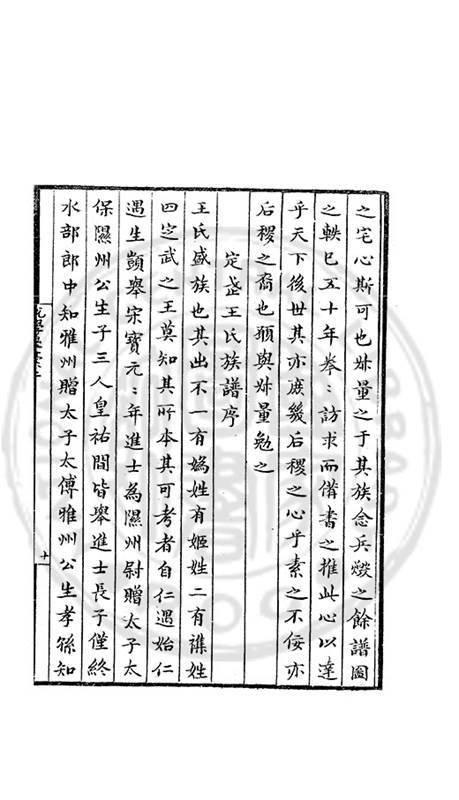 之宅心斯可也姊量之于其族念兵燬之餘譜圖
之軼已五十年拳〻訪求而備書之推此心以達
乎天下後世其亦庶幾后稷之心乎素之不佞亦
后稷之裔也願與姊量勉之
定武王氏族譜序
王氏盛族也其出不一有媯姓有姬姓二有譙姓
四定武之王莫知其所本其可考者自仁遇始仁
遇生顗舉宋寶元〻年進士為隰州尉贈太子太
保隰州公生子三人皇祐間皆舉進士長子僅終
水部郎中知雅州贈太子太傅雅州公生孝孫知
十